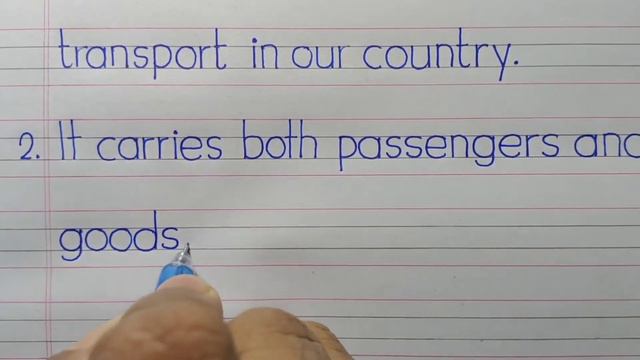 transport in our country.
2. It carries both passengers and
goods.